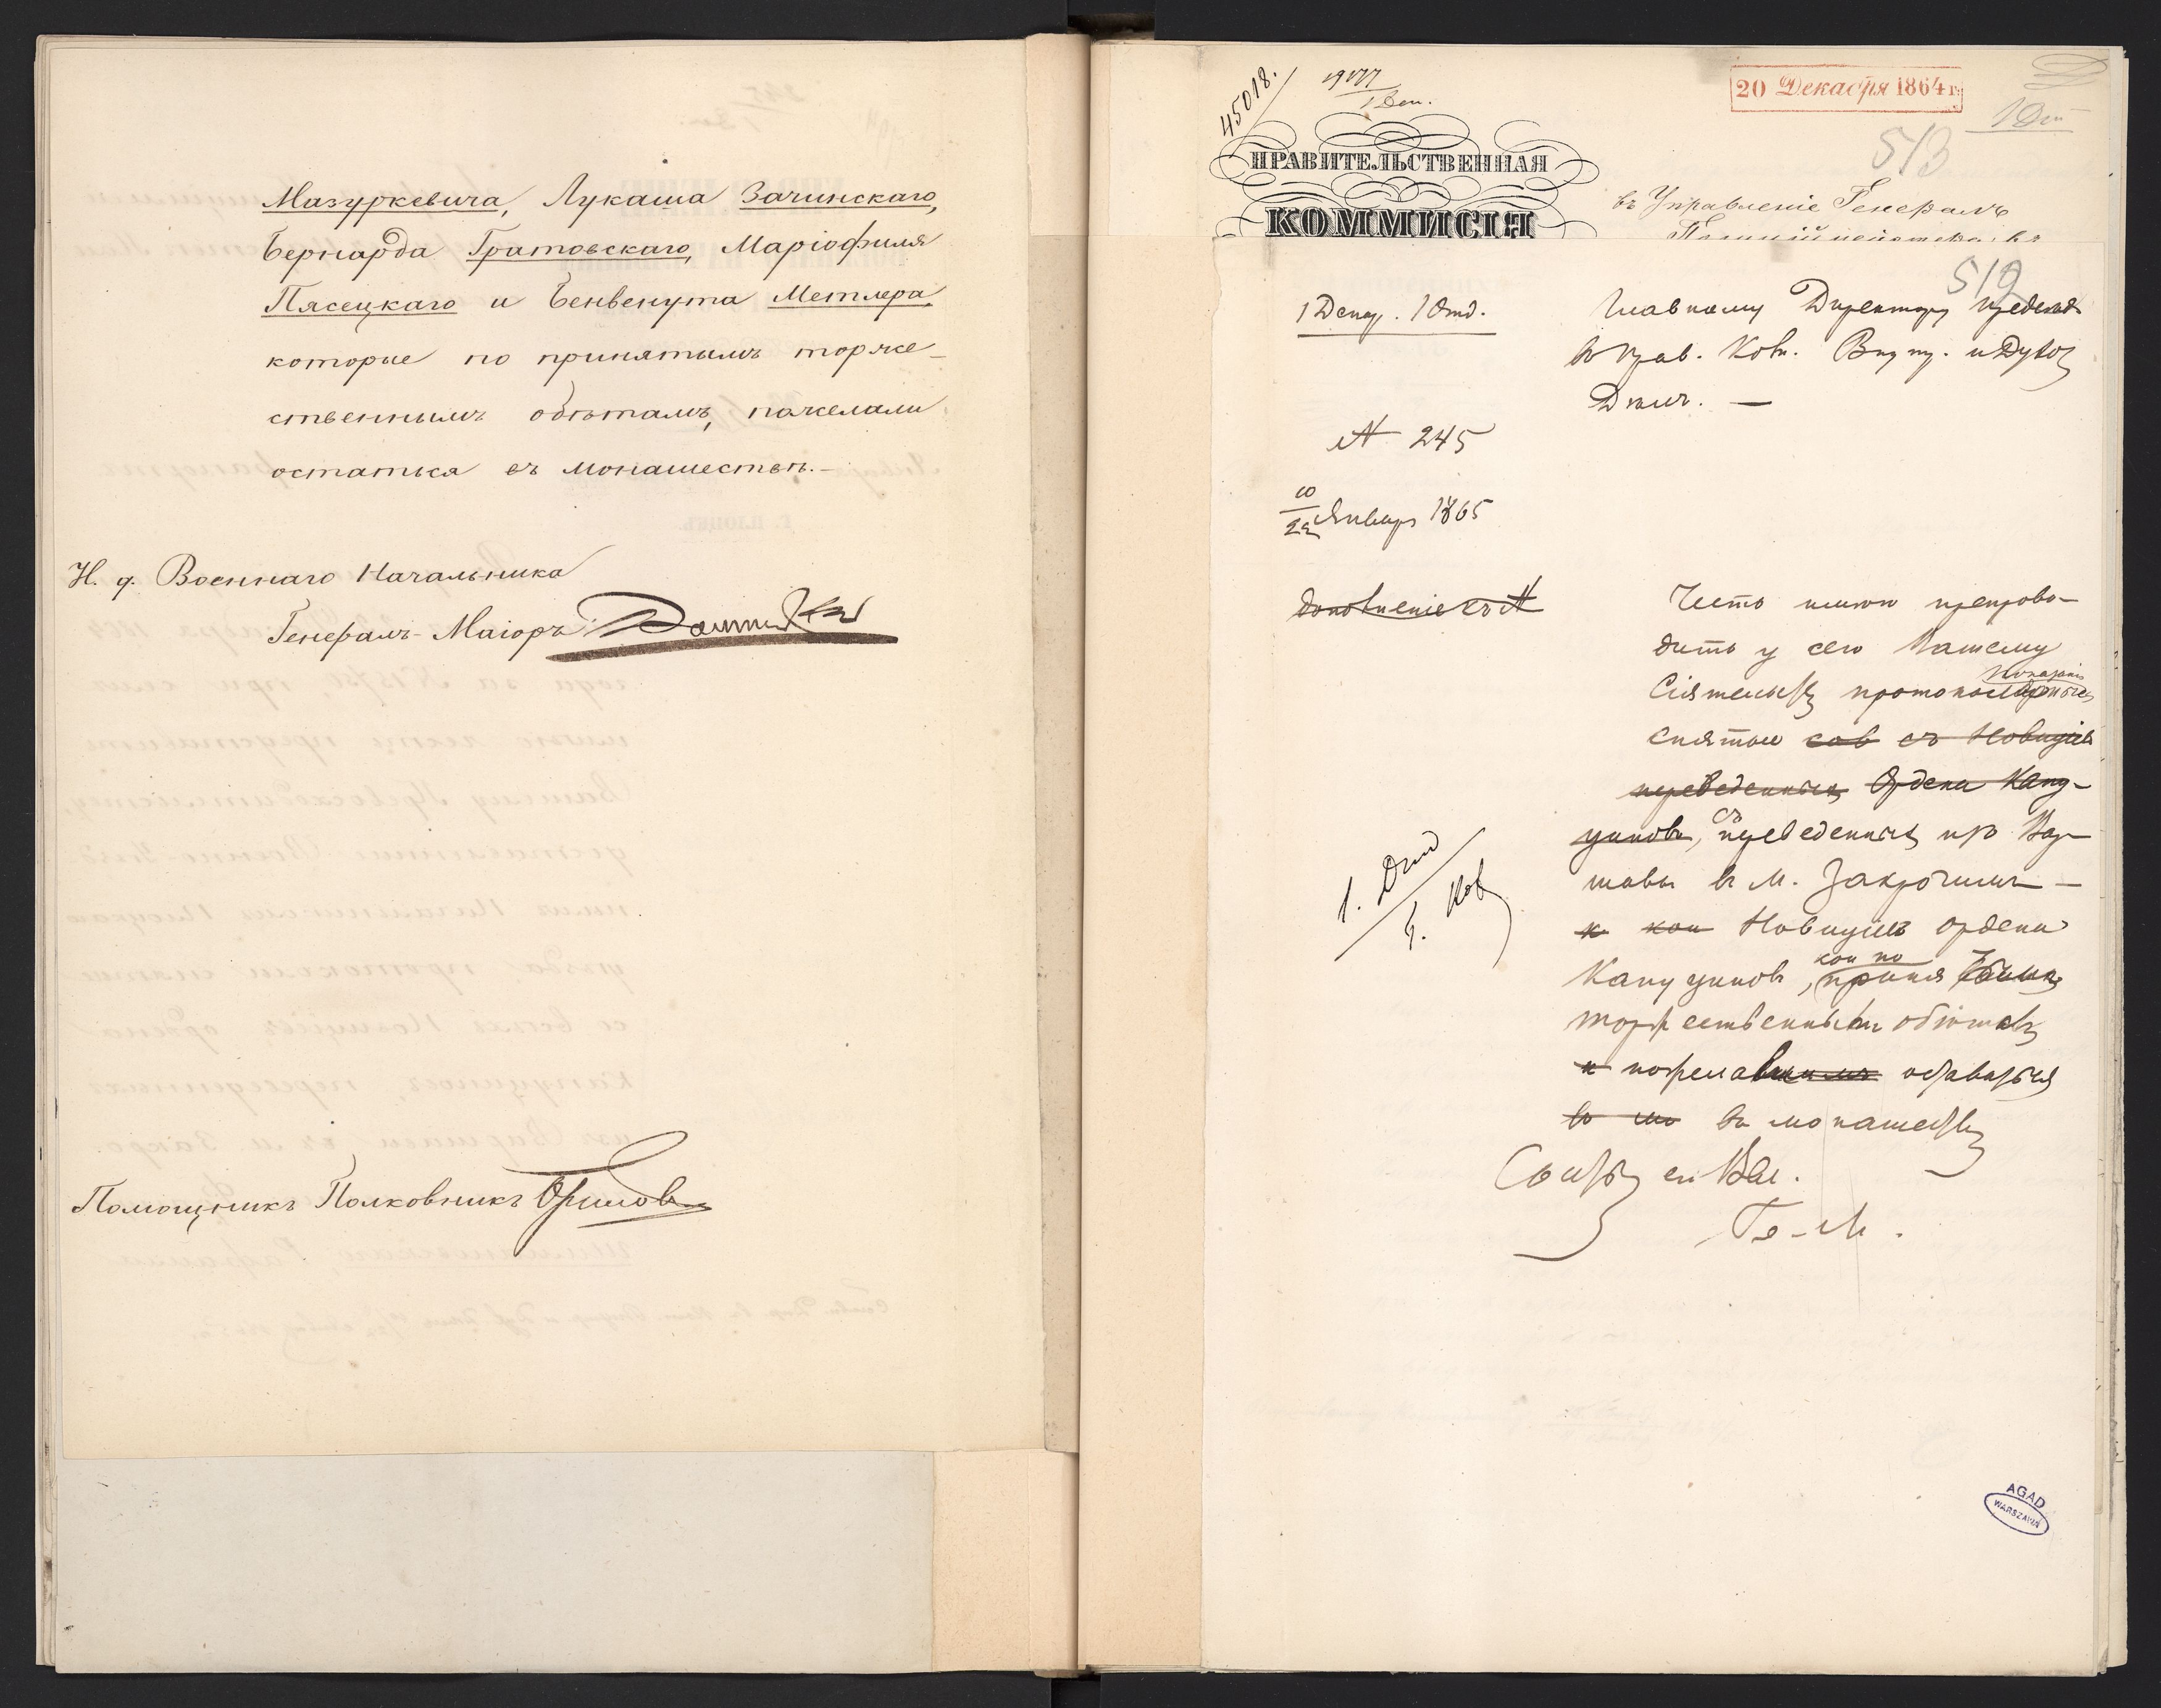 Мазуркевича, Лукаша Зачинскаго,
Бернарда Гратовскаго, Маріофиля
Пясецкаго и Бенвенута Метлера,
которые по принятымъ торже-
ственнымъ обѣтамъ, пожелали
остаться въ монашествѣ.-
И. д. Военнаго Начальника
Генералъ-Маіоръ
Помощникъ Полковникъ
45018.
19177
1 Деп.
20 Декабря 1864 г.
513
ПРАВИТЕЛЬСТВЕННАЯ
КОММИСІЯ
въ Управленіе Генералъ
519
1 Депар. 1 Отд.
Главному Директору Председ
въ Прав. Ком. Внут. и Духов
Дѣлъ. —
№ 245
10
22 Января 1865
дополненіе къ №
Честь имѣю препрово-
дить у сего Вашему
Сіятельству протоколы
показанія
снятые съ Новиціев
переведенных Ордена Капу-
цинов, съ переведенных изъ Вар-
шавы въ М. Закрочимъ —
к кои Новиціев ордена
Капуцинов, приня
кои по
торжественным обѣтам
и пожелавшимъ оставаться
въ монашеству
Г-М.
AGAD
WARSZAWA